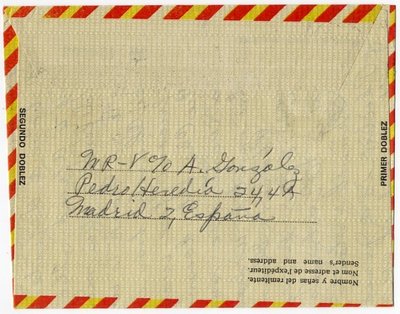 SEGUNDO DOBLEZ
PRIMER DOBLEZ
A. González
Pedro Heredia 24, 4A
Madrid 2, España
Nombre y señas del remitente.
Nom et adresse de l'expediteur.
Sender's name and address.